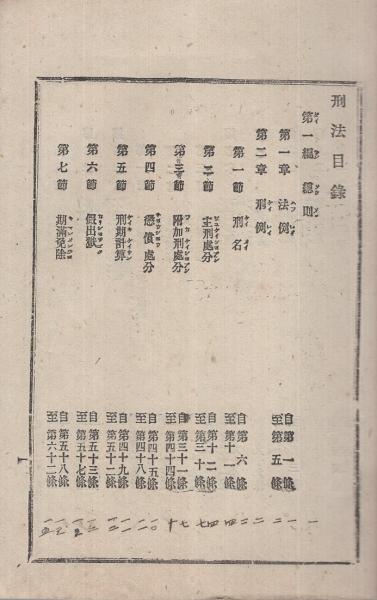 刑法目錄
第一編 總則
第一章 法例 自第一條 至第五條
第二章 刑例
第一節 刑名 自第六條 至第十一條
第二節 主刑處分 自第十二條 至第三十條
第三節 附加刑處分 自第三十一條 至第四十四條
第四節 徴償處分 自第四十五條 至第四十八條
第五節 刑期計算 自第四十九條 至第五十二條
第六節 假出獄 自第五十三條 至第五十七條
第七節 期滿免除 自第五十八條 至第六十二條